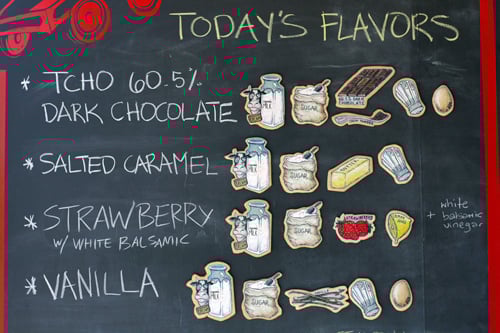 TODAY'S FLAVORS
* TCHO 60.5%
DARK CHOCOLATE
* SALTED CARAMEL
* STRAWBERRY
W/ WHITE BALSAMIC
white
+ balsamic
vinegar
* VANILLA
MILK
SUGAR
DARK
CHOCOLATE
MILK
SUGAR
BUTTER
MILK
SUGAR
STRAWBERRIES
MILK
SUGAR